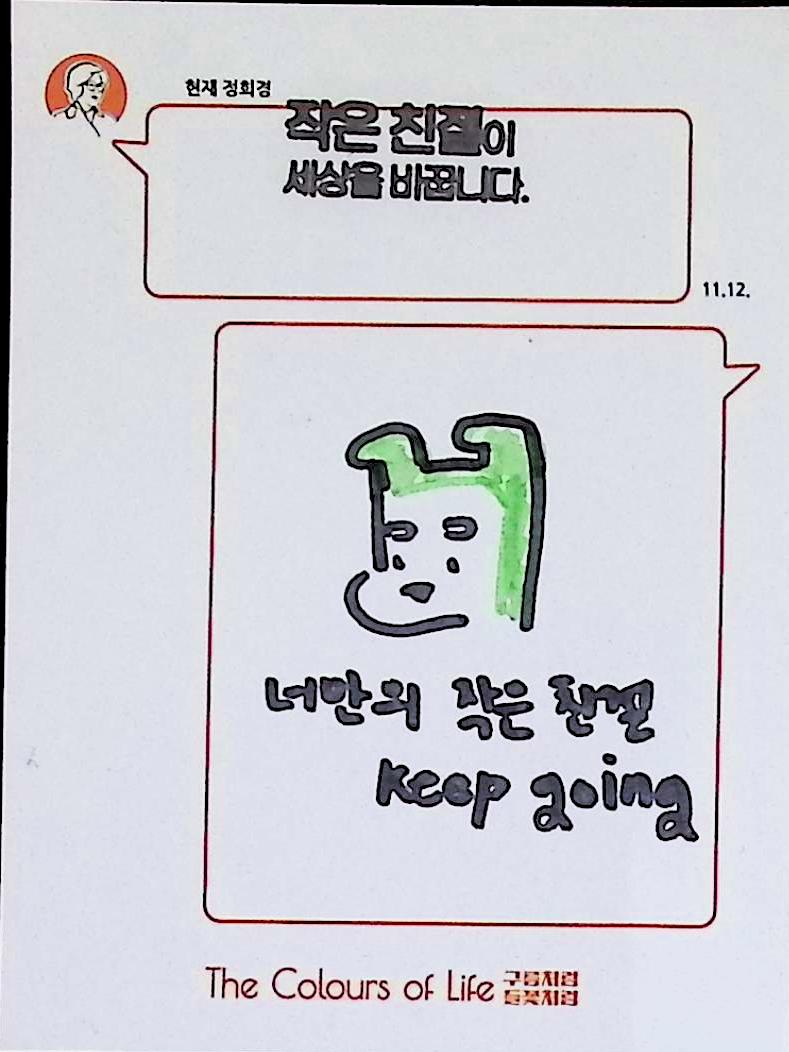 현재 정희경
작은 친절이
세상을 바꿉니다.
11.12.
너만의 작은 친절
keep going
The Colours of Life 구름처럼
들꽃처럼